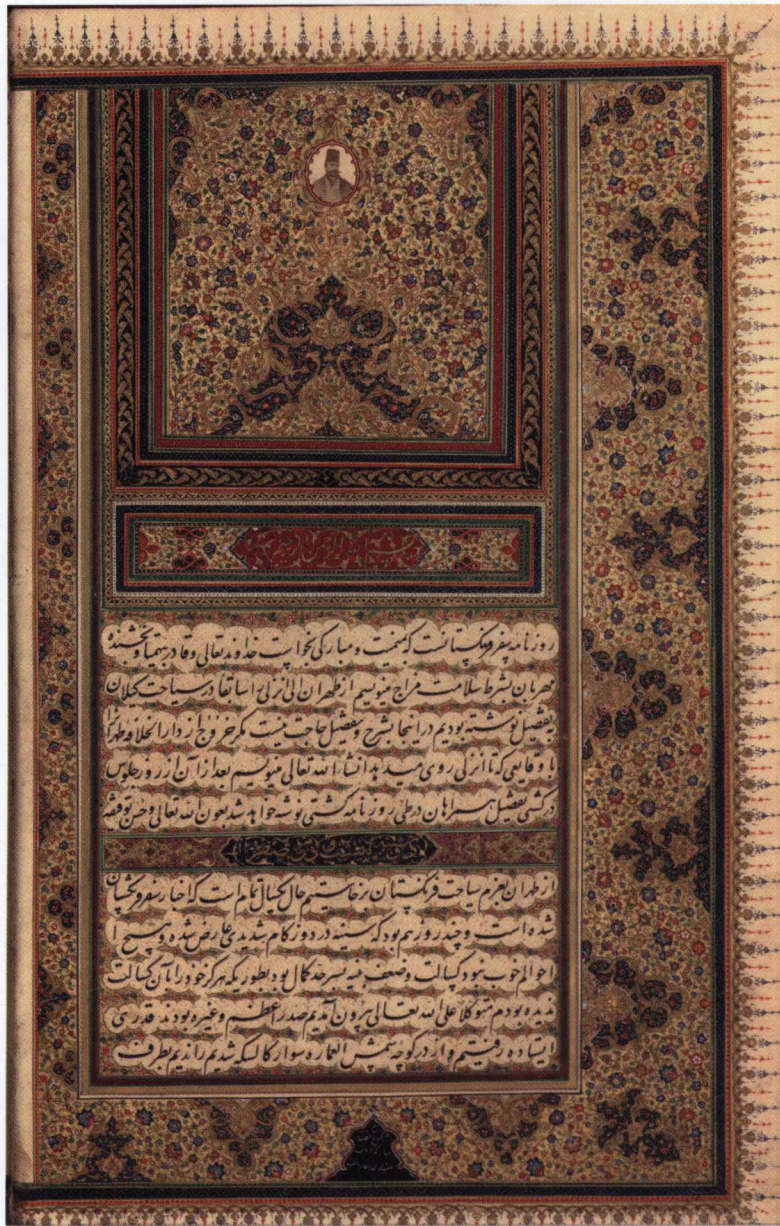 بسم الله الرحمن الرحیم
روزنامه سفر فرنگستانست که بمیمنت و مبارکی بخواست خداوند تعالی و قادر بیهمتا و بخشنده
مهربان بشرط سلامت مزاج مینویسم از طهران الی انزلی را سابقا در سیاحت کیلان
بتفصیل نوشته بودیم در اینجا بشرح و تفصیل حاجت نیست مکر خروج از دارالخلافه طهران را
با وقایعی که تا انزلی روی میدهد انشاء الله تعالی مینویسم بعد از آن از روز جلوس
در کشتی بتفصیل همراهان در طی روزنامه کشتی نوشته خواهد شد بعون الله تعالی و حسن توفیقه
از طهران بعزم سیاحت فرنکستان برخاستیم حال یکسال تمام است که اخبار سفر فرنکستان
شده است و چند روز هم بود که سینه درد و زکام شدیدی عارض شده و هیچ
احوالم خوب نبود کسالت و ضعف بنیه بسر حد کمال بود بطوریکه هرکز خود را بآن کسالت
ندیده بودم متوکلا علی الله تعالی بیرون آمدیم صدر اعظم و غیره بودند قدری
ایستاده رفتیم و از در کوچه شمس العماره سوار کالسکه شدیم راندیم بطرف